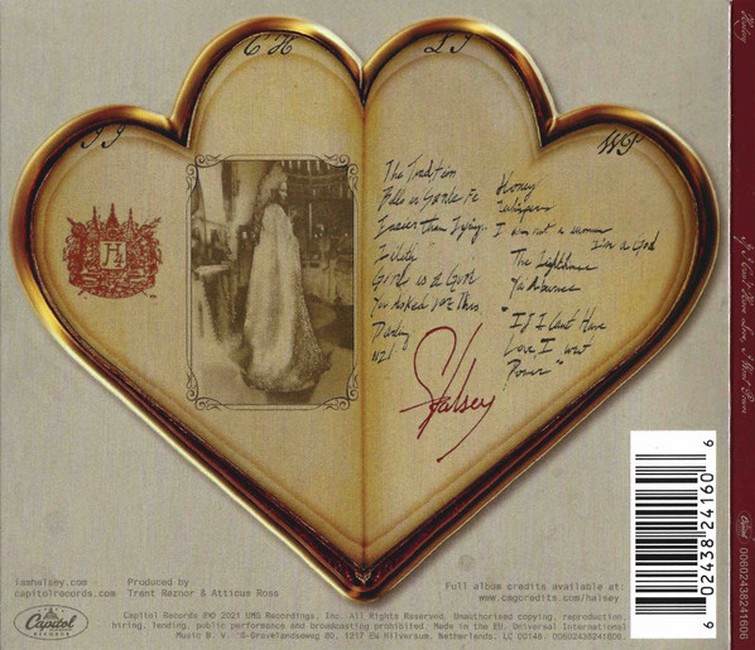 JJ
C H
LJ
WP
H4
The Tradition
Bells in Santa Fe
Easier Than Lying
Lilith
Girl is a Gun
You Asked for This
Darling
1121
Honey
Whispers
I am not a woman
I'm a God
The Lighthouse
Ya'aburnee
"If I Can't Have
Love, I want
Power"
Halsey
iamhalsey.com
capitolrecords.com
Produced by
Trent Reznor & Atticus Ross
Full album credits available at:
www.cmgcredits.com/halsey
Capitol
RECORDS
Capitol Records ℗© 2021 UMG Recordings, Inc. All Rights Reserved. Unauthorised copying, reproduction,
hiring, lending, public performance and broadcasting prohibited. Made in the EU. Universal International
Music B.V. 's-Gravelandseweg 80, 1217 EW Hilversum, Netherlands. LC 00148. 00602438241606.
6 02438 24160 6
Halsey
If I Can't Have Love, I Want Power
Capitol
00602438241606